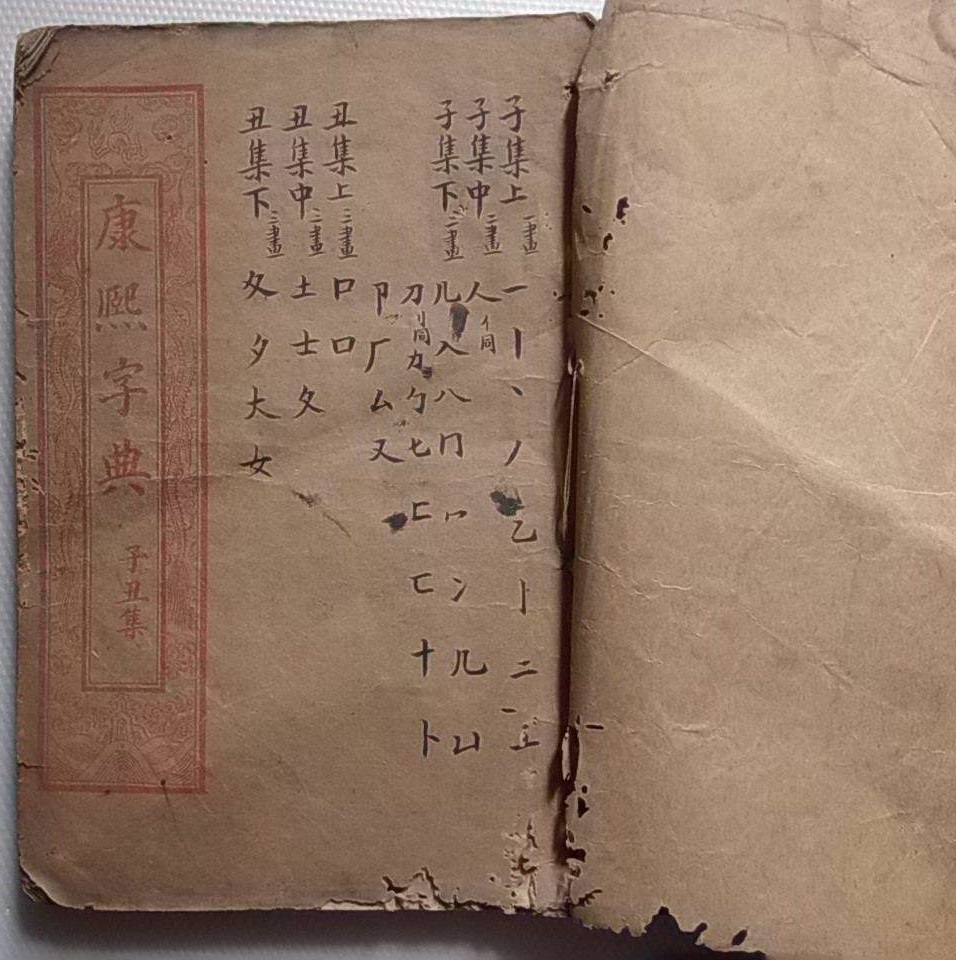 子集上一畫一丨丶丿乙亅二亠
子集中二畫人亻同
子集下二畫儿入八冂冖冫几凵
刀刂同力勹匕匚匸十卜
卩厂厶又
丑集上三畫口囗
丑集中三畫土士夂
丑集下三畫夊夕大女
康熙字典 子丑集